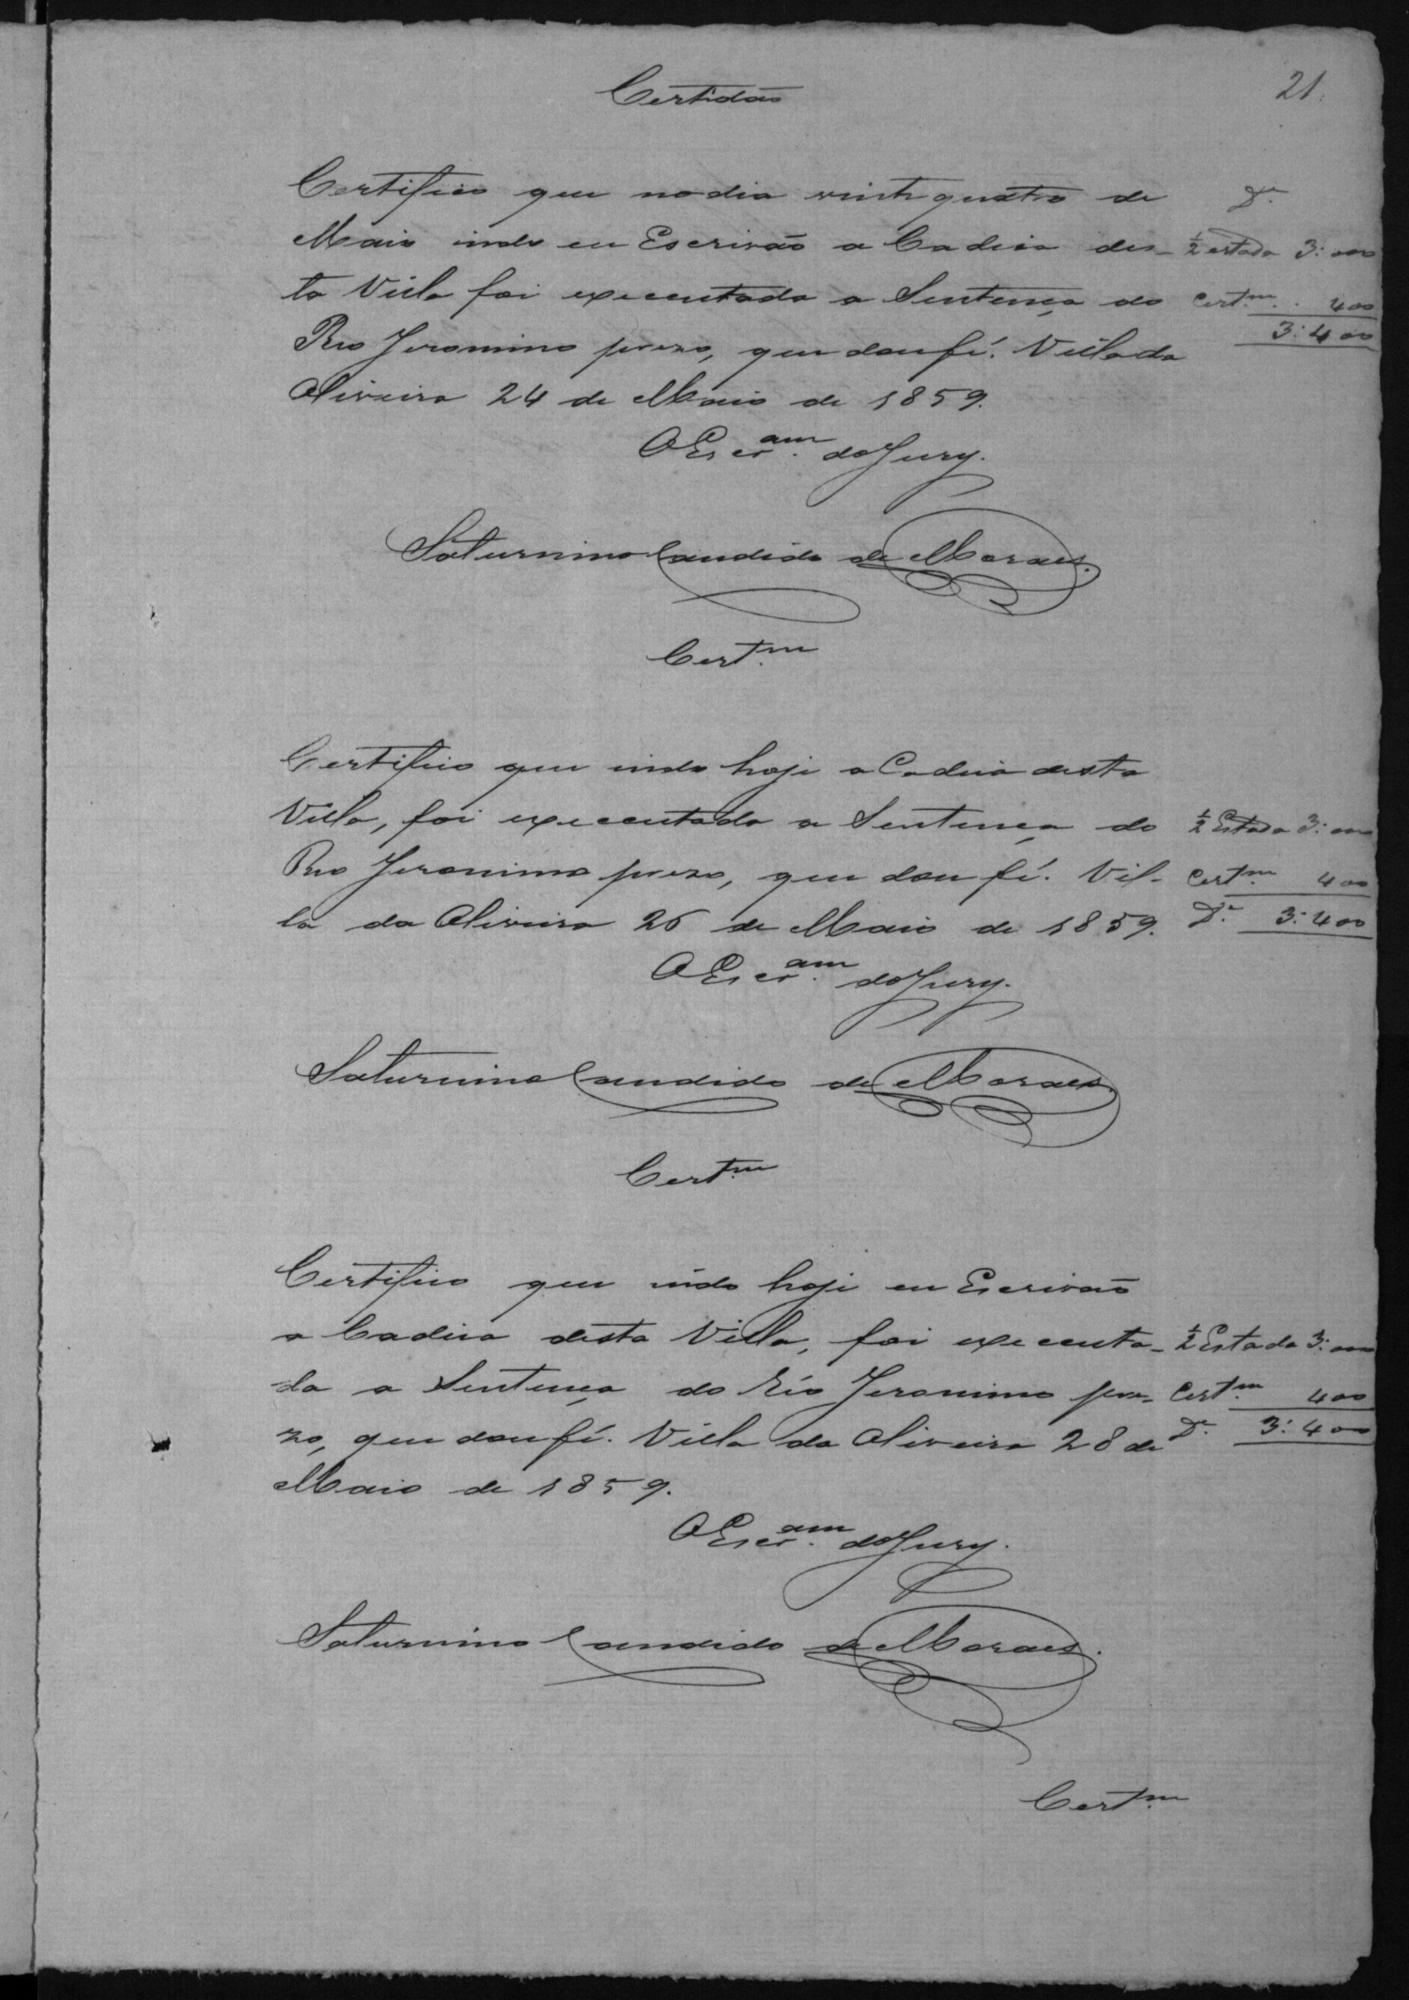 21.
Certidão
Certifico que no dia vinte quatro de
Maio indo eu Escrivão a Cadeia des-
ta Villa foi executada a Sentença do
Reo Jeronimo prezo, que dou fé. Villa da
Oliveira 24 de Maio de 1859.
Dª
½ estada 3:000
Certᵐ. 400
3:400
O Escrᵃᵐ. do Jury.
Saturnino Candido de Moraes.
Certᵐ
Certifico que indo hoje a Cadeia desta
Villa, foi executada a Sentença do
Reo Jeronimo prezo, que dou fé. Vil-
la da Oliveira 26 de Maio de 1859.
½ Estada 3:000
Certᵐ. 400
Dª. 3:400
O Escrᵃᵐ. do Jury.
Saturnino Candido de Moraes.
Certᵐ
Certifico que indo hoje eu Escrivão
a Cadeia desta Villa, foi executa-
da a Sentença do Réo Jeronimo pre-
zo, que dou fé. Villa da Oliveira 28 de
Maio de 1859.
½ Estada 3:000
Certᵐ. 400
Dª. 3:400
O Escrᵃᵐ. do Jury.
Saturnino Candido de Moraes.
Certᵐ